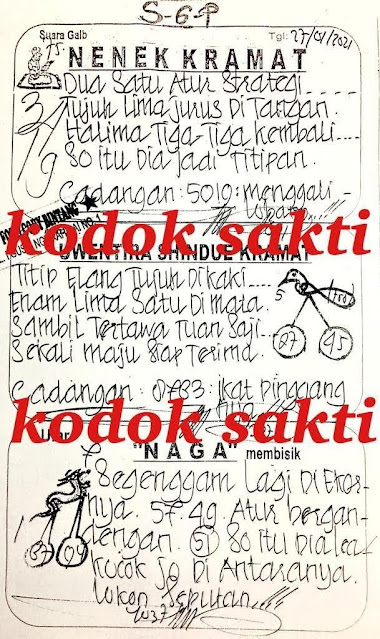 S-G-P
Suara Gaib
Tgl: 27/01/2021
NENEK KRAMAT
Dua Satu Atur Strategi....
Tujuh Lima Jurus Di Tangan.
Halima Tiga-Tiga Kembali....
80 itu Dia Jadi Titipan.
Cadangan: 5010: menggali -
kodok sakti
UWENTIRA SHINDUE KRAMAT
Titip Elang Tujuh Dikaki....
Enam Lima Satu Di Mata.
Sambil Tertawa Tuan Saji..
Sekali Maju Siap Terima.
5
87
45
Cadangan: 0783: ikat Pinggang
kodok sakti
"NAGA" membisik
Segenggam Lagi Di Ekor-
nya. 57.49 Atur bergan-
dengan. 51 80 itu Dia
Kocok 50 Di Antaranya.
87 09
1037